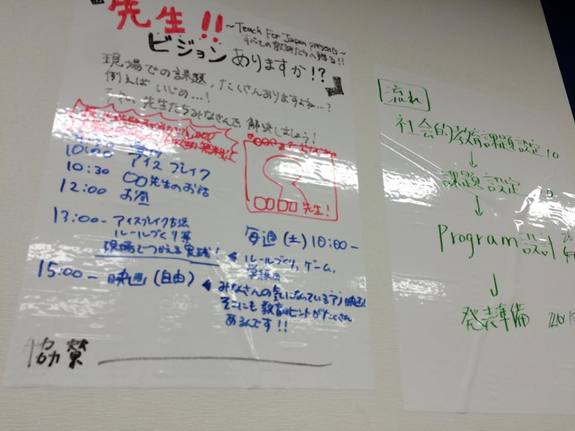 先生!!
~Teach For Japan presents~
すべての教師たちへ贈る!!
ビジョンありますか!?
現場での課題、たくさんありますよね…?
例えば いじめ…!
先生たちみなさんで 解決しましょう!
アイスブレイク
10:30 〇〇先生のお話
12:00 お昼
13:00- アイスブレイク方法
ルールづくり等
現場でつかえる実践!
15:00- 映画(自由)
〇〇〇〇 先生!
毎週(土)10:00-
ルールづくり、ゲーム、
みなさんの気になっているアノ映画!
そこにも教育のヒントがたくさん
あるんです!!
協賛
流れ
社会的教育課題設定 10
↓
課題設定
↓
Program設計
↓
発表準備